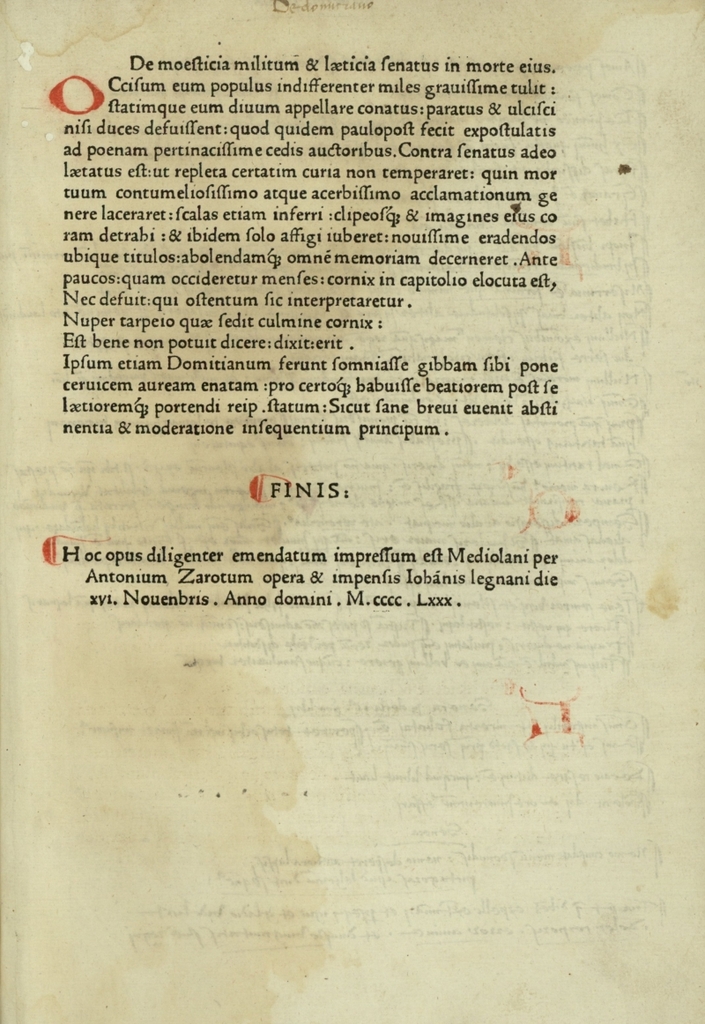 De domitiano
De moesticia militum & læticia senatus in morte eius.
OCcisum eum populus indifferenter miles grauissime tulit :
statimque eum diuum appellare conatus: paratus & ulcisci
nisi duces defuissent: quod quidem paulopost fecit expostulatis
ad poenam pertinacissime cedis auctoribus. Contra senatus adeo
lætatus est: ut repleta certatim curia non temperaret: quin mor
tuum contumeliosissimo atque acerbissimo acclamationum ge
nere laceraret: scalas etiam inferri : clipeosq; & imagines eius co
ram detrahi : & ibidem solo affigi iuberet: nouissime eradendos
ubique titulos: abolendamq; omné memoriam decerneret . Ante
paucos: quam occideretur menses: cornix in capitolio elocuta est,
Nec defuit: qui ostentum sic interpretaretur .
Nuper tarpeio quæ sedit culmine cornix :
Est bene non potuit dicere: dixit: erit .
Ipsum etiam Domitianum ferunt somniasse gibbam sibi pone
ceruicem auream enatam : pro certoq; habuisse beatiorem post se
lætioremq; portendi reip . statum: Sicut sane breui euenit absti
nentia & moderatione insequentium principum .
FINIS:
Hoc opus diligenter emendatum impressum est Mediolani per
Antonium Zarotum opera & impensis Iohánis legnani die
xvi. Nouenbris . Anno domini . M.cccc . Lxxx .